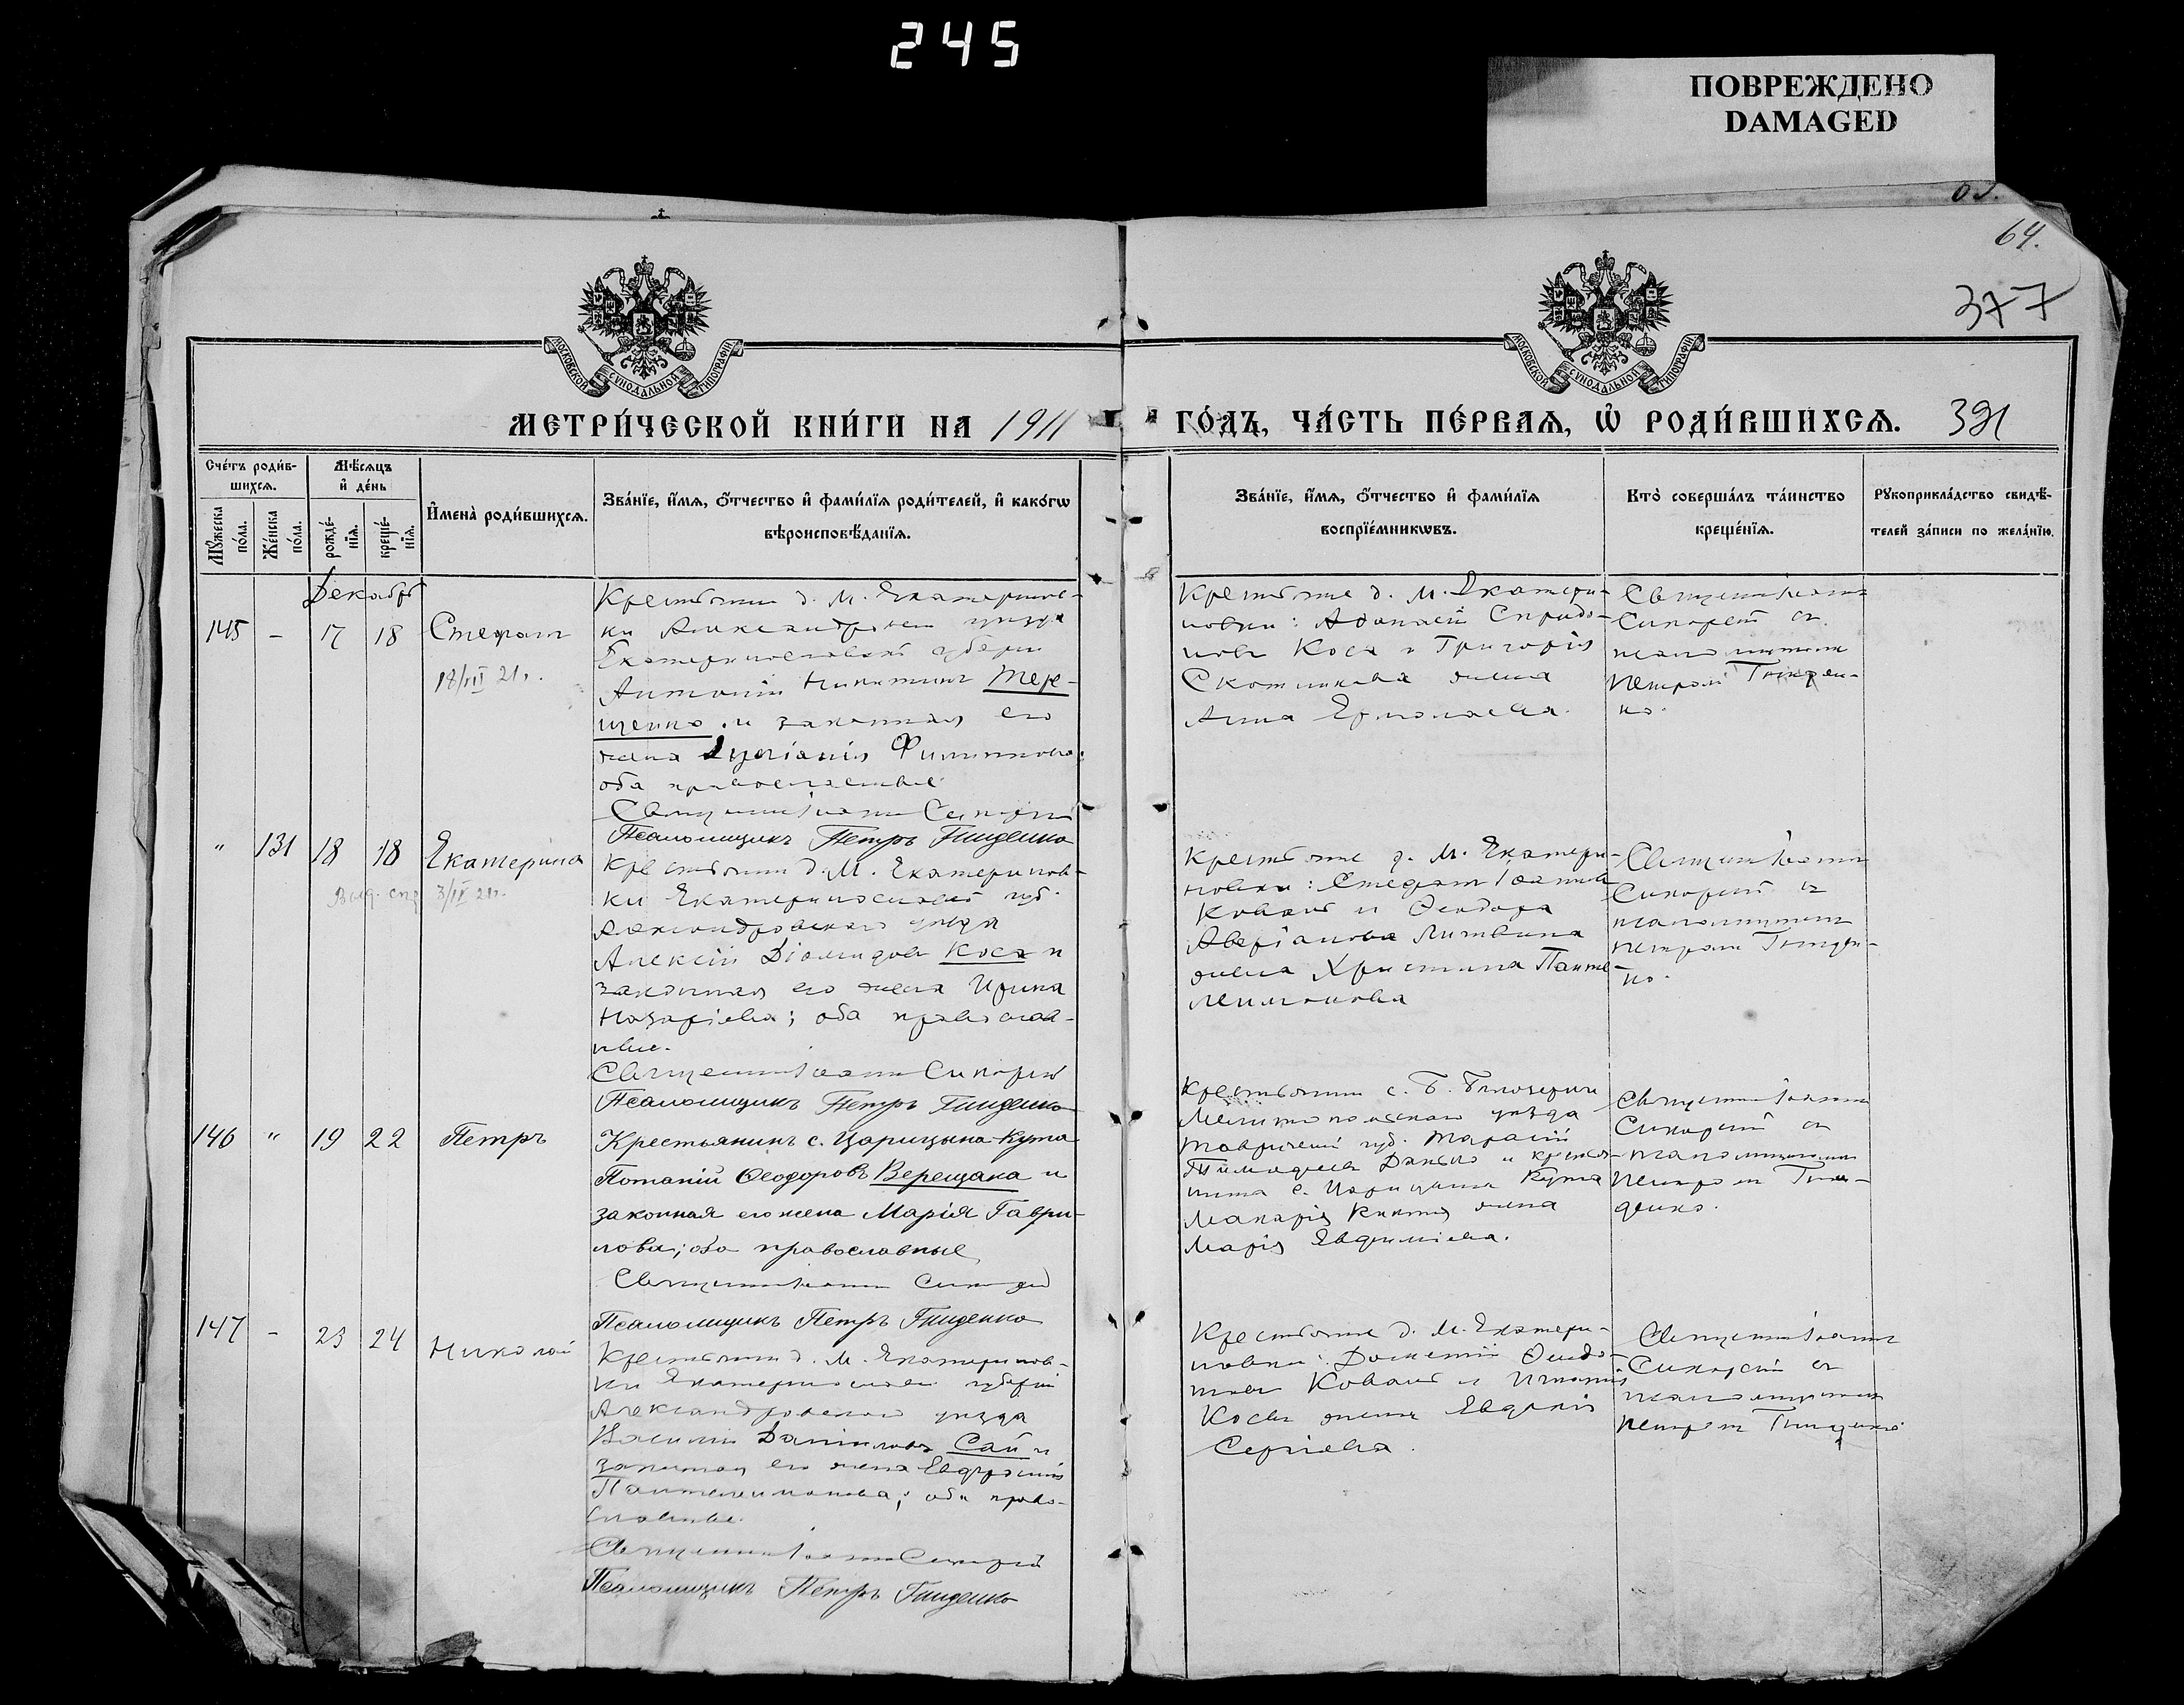 245
ПОВРЕЖДЕНО
DAMAGED
64.
377
МОСКОВСКОЙ СУНОДАЛЬНОЙ ТИПОГРАФІИ
МОСКОВСКОЙ СУНОДАЛЬНОЙ ТИПОГРАФІИ
МЕТРИ́ЧЕСКОЙ КНИ́ГИ НА 1911
ГО́ДЪ, ЧА́СТЬ ПЕ́РВАѦ, Ѡ҆ РОДИ́ВШИХСѦ. 391
Сче́тъ роди́в-
шихсѧ.
Мѣ́сѧцъ
и҆ де́нь
Мꙋ́жеска по́ла.
Же́нска по́ла.
рожде́-
нїѧ.
креще́-
нїѧ.
И҆мена̀ роди́вшихсѧ.
Зва́нїе, и҆́мѧ, ѻ҆́тчество и҆ фами́лїѧ роди́телей, и҆ како́гѡ
вѣроисповѣ́данїѧ.
Зва́нїе, и҆́мѧ, ѻ҆́тчество и҆ фами́лїѧ
воспрїе́мникѡвъ.
Кто̀ соверша́лъ та́инство
креще́нїѧ.
Рꙋкоприкла́дство свидѣ́-
телей за́писи по жела́нїю.
Декабрь
145 – 17 18 Стефанъ
18/III 21 г.
Крестьянин д. М. Екатеринов-
ки Александровск уезда
Екатеринославской губерн
Антоній Никитинъ Тере-
щенко и законная его
жена Филиппова;
оба православные
Священ Іоанн Сикорскій
Псаломщикъ Петръ Гниденко
Крестьяне д. М. Екатери-
новки: Афанасій Спиридо-
новъ Коса и Григорія
жена
Анна Ермолаева.
Священ Іоанн
Сикорскій съ
псаломщикомъ
Петромъ Гниден-
ко.
" 131 18 18 Екатерина
Выд. спр 3/IV 21 г.
Крестьянин д. М. Екатеринов-
ки Екатеринославской губ.
Александровскаго уезда
Алексій Діомидовъ Коса и
законная его жена Ирина
Назаріева; оба православ-
ные.
Священ Іоанн Сикорскій
Псаломщикъ Петръ Гниденко
Крестьяне д. М. Екатери-
новки: Стефанъ Іоаннов
Коваль и Ѳеодора
Аверіанова Литвина
жена Христина Панте-
леимонова
Священ Іоанн
Сикорскій съ
псаломщикомъ
Петромъ Гниден-
ко.
146 " 19 22 Петръ
Крестьянинъ с. Царицына-Кута
Потапій Ѳеодоровъ Верещака и
законная его жена Марія Гаври-
лова; оба православные
Священ Іоанн Сикорскій
Псаломщикъ Петръ Гниденко
Крестьянин с. Б. Бѣлозерки
Мелитопольскаго уезда
Таврической губ. Тарасій
Тимофеевъ и крестья-
нина с. Царицына Кута
Макарія жена
Марія Евфиміева.
Священ Іоанн
Сикорскій съ
псаломщикомъ
Петромъ Гни-
денко.
147 – 23 24 Николай
Крестьянин д. М. Екатеринов-
ки Екатеринослав губерніи
Александровскаго уезда
Василій Даніиловъ Сай и
законная его жена Евфросинія
Пантелеимонова; оба право-
славные.
Священ Іоанн Сикорскій
Псаломщикъ Петръ Гниденко
Крестьяне д. М. Екатери-
новки: Дометій Ѳеодо-
товъ Коваль и Игнатія
Косы жена Евдокія
Сергіева.
Священ Іоанн
Сикорскій съ
псаломщикомъ
Петромъ Гниденко